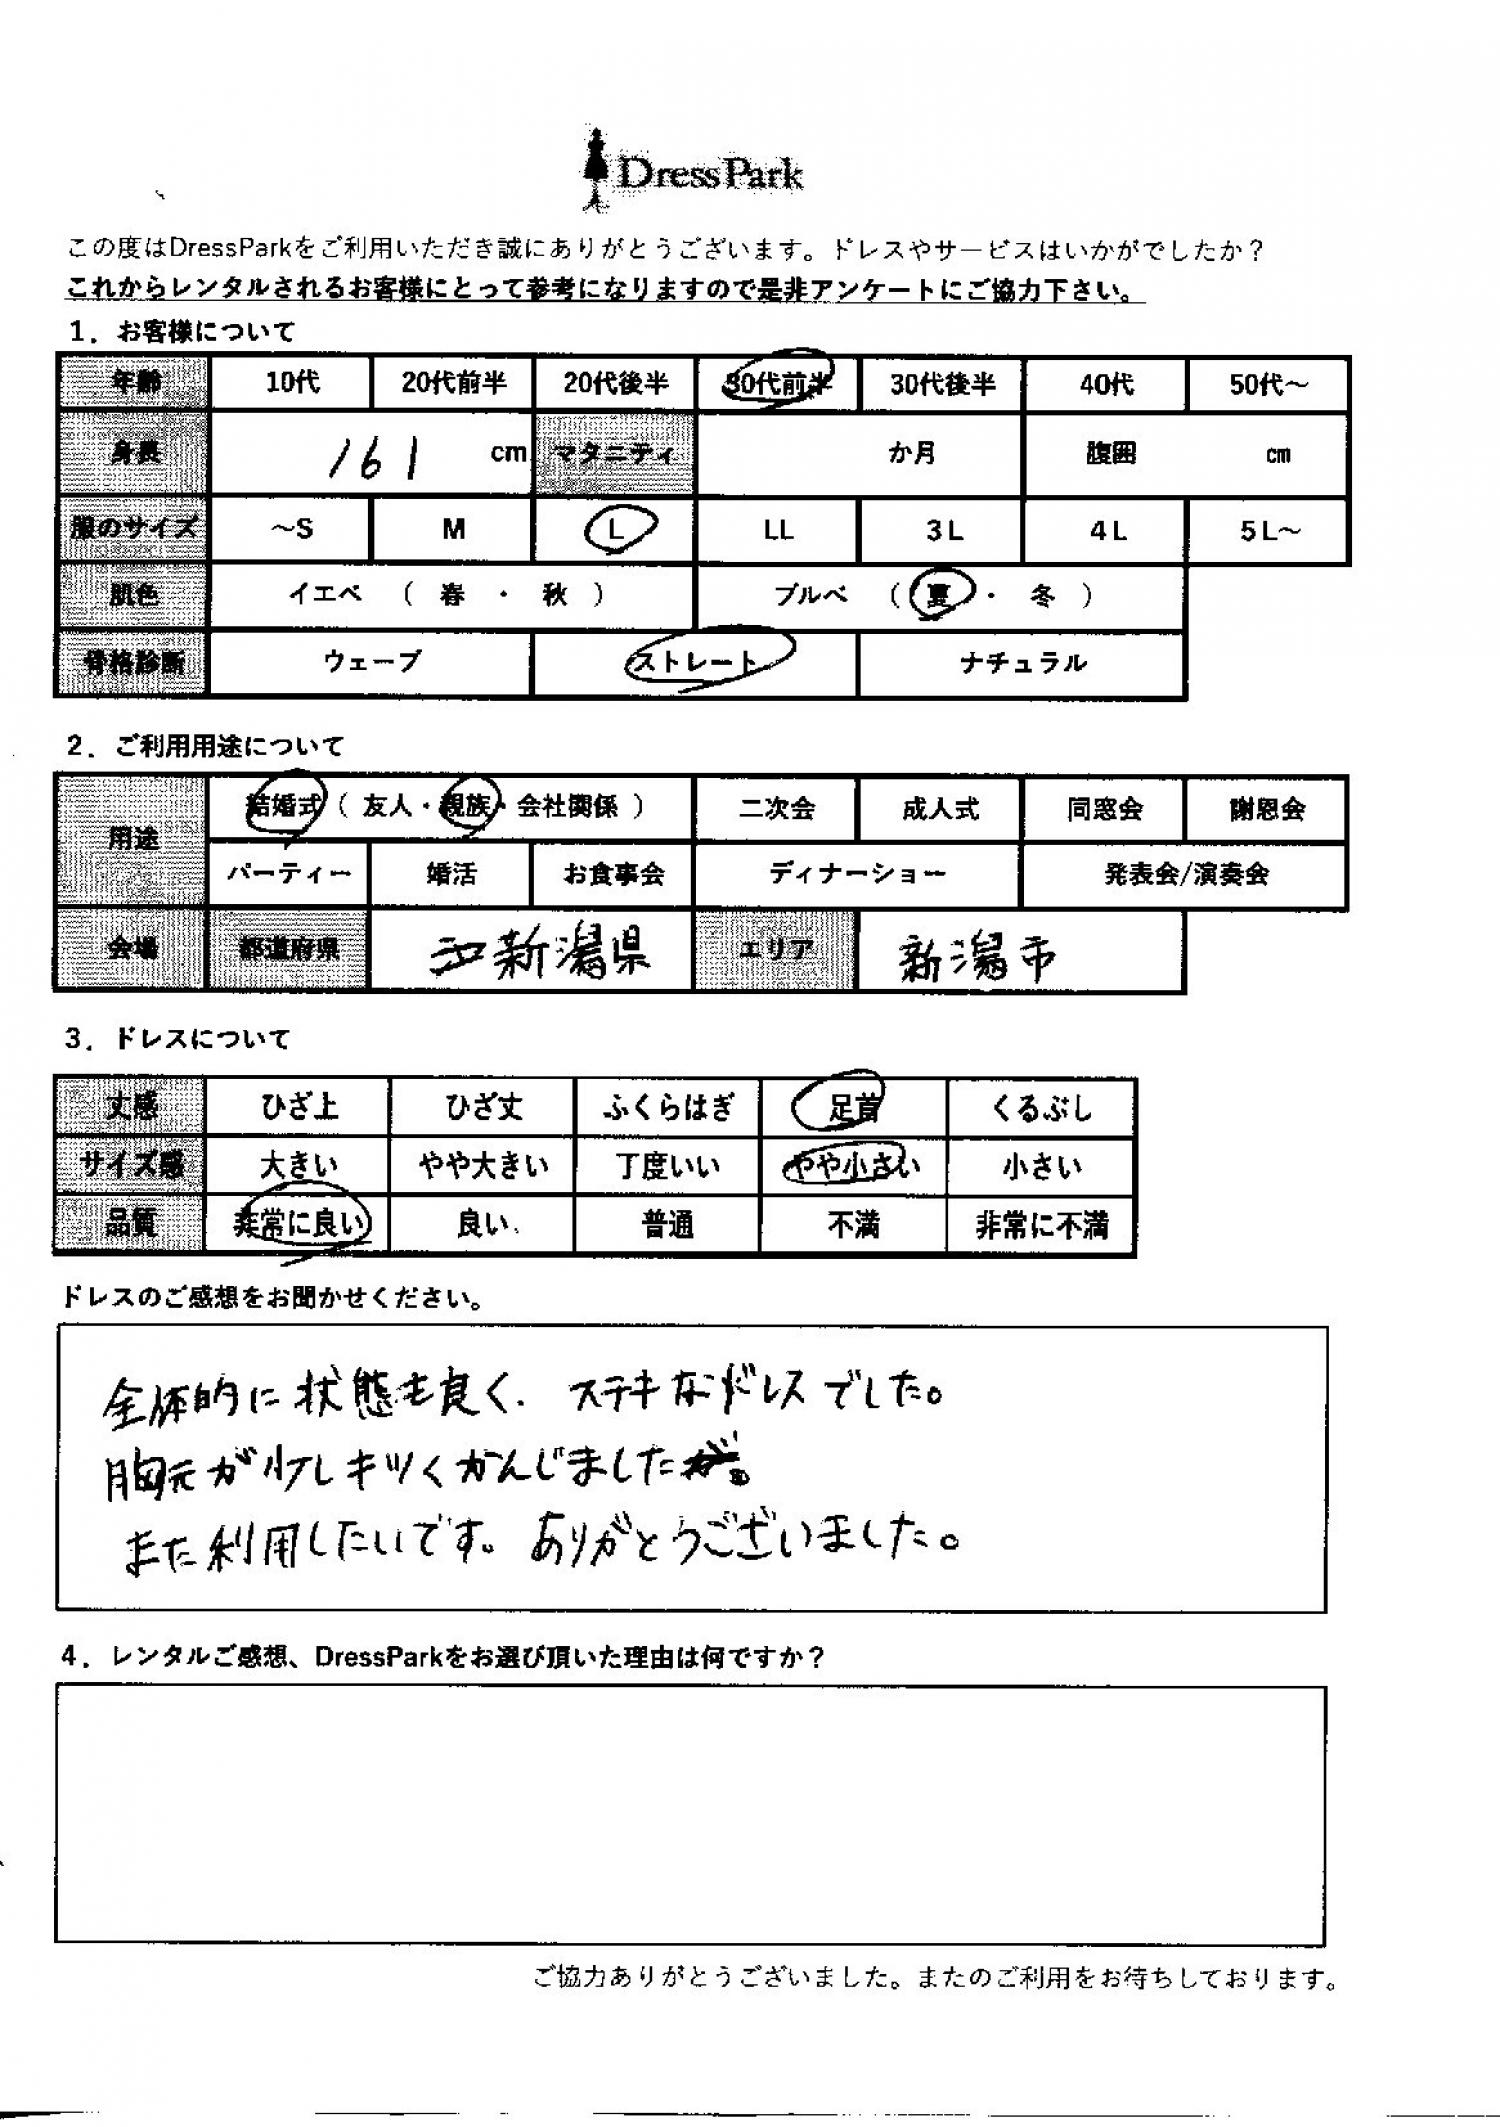 DressPark
この度はDressParkをご利用いただき誠にありがとうございます。ドレスやサービスはいかがでしたか？
これからレンタルされるお客様にとって参考になりますので是非アンケートにご協力下さい。
1．お客様について
年齢 10代 20代前半 20代後半 30代前半 30代後半 40代 50代～
身長 161 cm マタニティ か月 腹囲 cm
服のサイズ ～S M L LL 3L 4L 5L～
肌色 イエベ （ 春 ・ 秋 ） ブルベ （ 夏 ・ 冬 ）
骨格診断 ウェーブ ストレート ナチュラル
2．ご利用用途について
用途 結婚式（ 友人・親族・会社関係 ） 二次会 成人式 同窓会 謝恩会
パーティー 婚活 お食事会 ディナーショー 発表会/演奏会
会場 都道府県 新潟県 エリア 新潟市
3．ドレスについて
丈感 ひざ上 ひざ丈 ふくらはぎ 足首 くるぶし
サイズ感 大きい やや大きい 丁度いい やや小さい 小さい
品質 非常に良い 良い 普通 不満 非常に不満
ドレスのご感想をお聞かせください。
全体的に状態も良く、ステキなドレスでした。
胸元が少しキツくかんじました。
また利用したいです。ありがとうございました。
4．レンタルご感想、DressParkをお選び頂いた理由は何ですか？
ご協力ありがとうございました。またのご利用をお待ちしております。